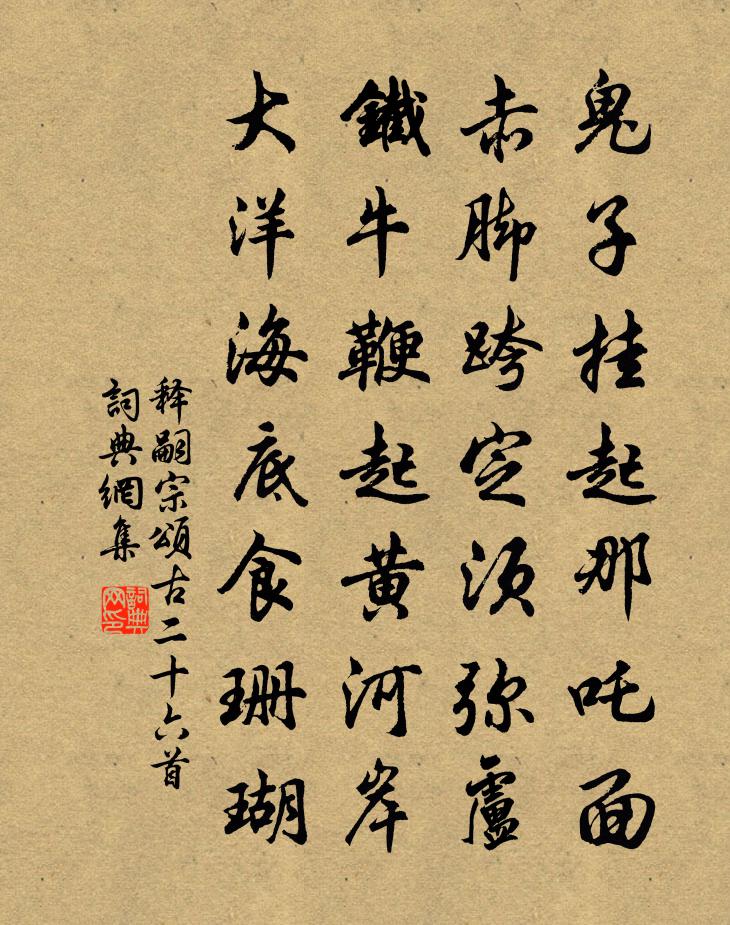 鬼子挂起那吒面
赤脚跨空须弥盧
鐵牛鞭起黄河岸
大洋海底食珊瑚
释嗣宗頌古二十六首
詞典網集
詞典网印